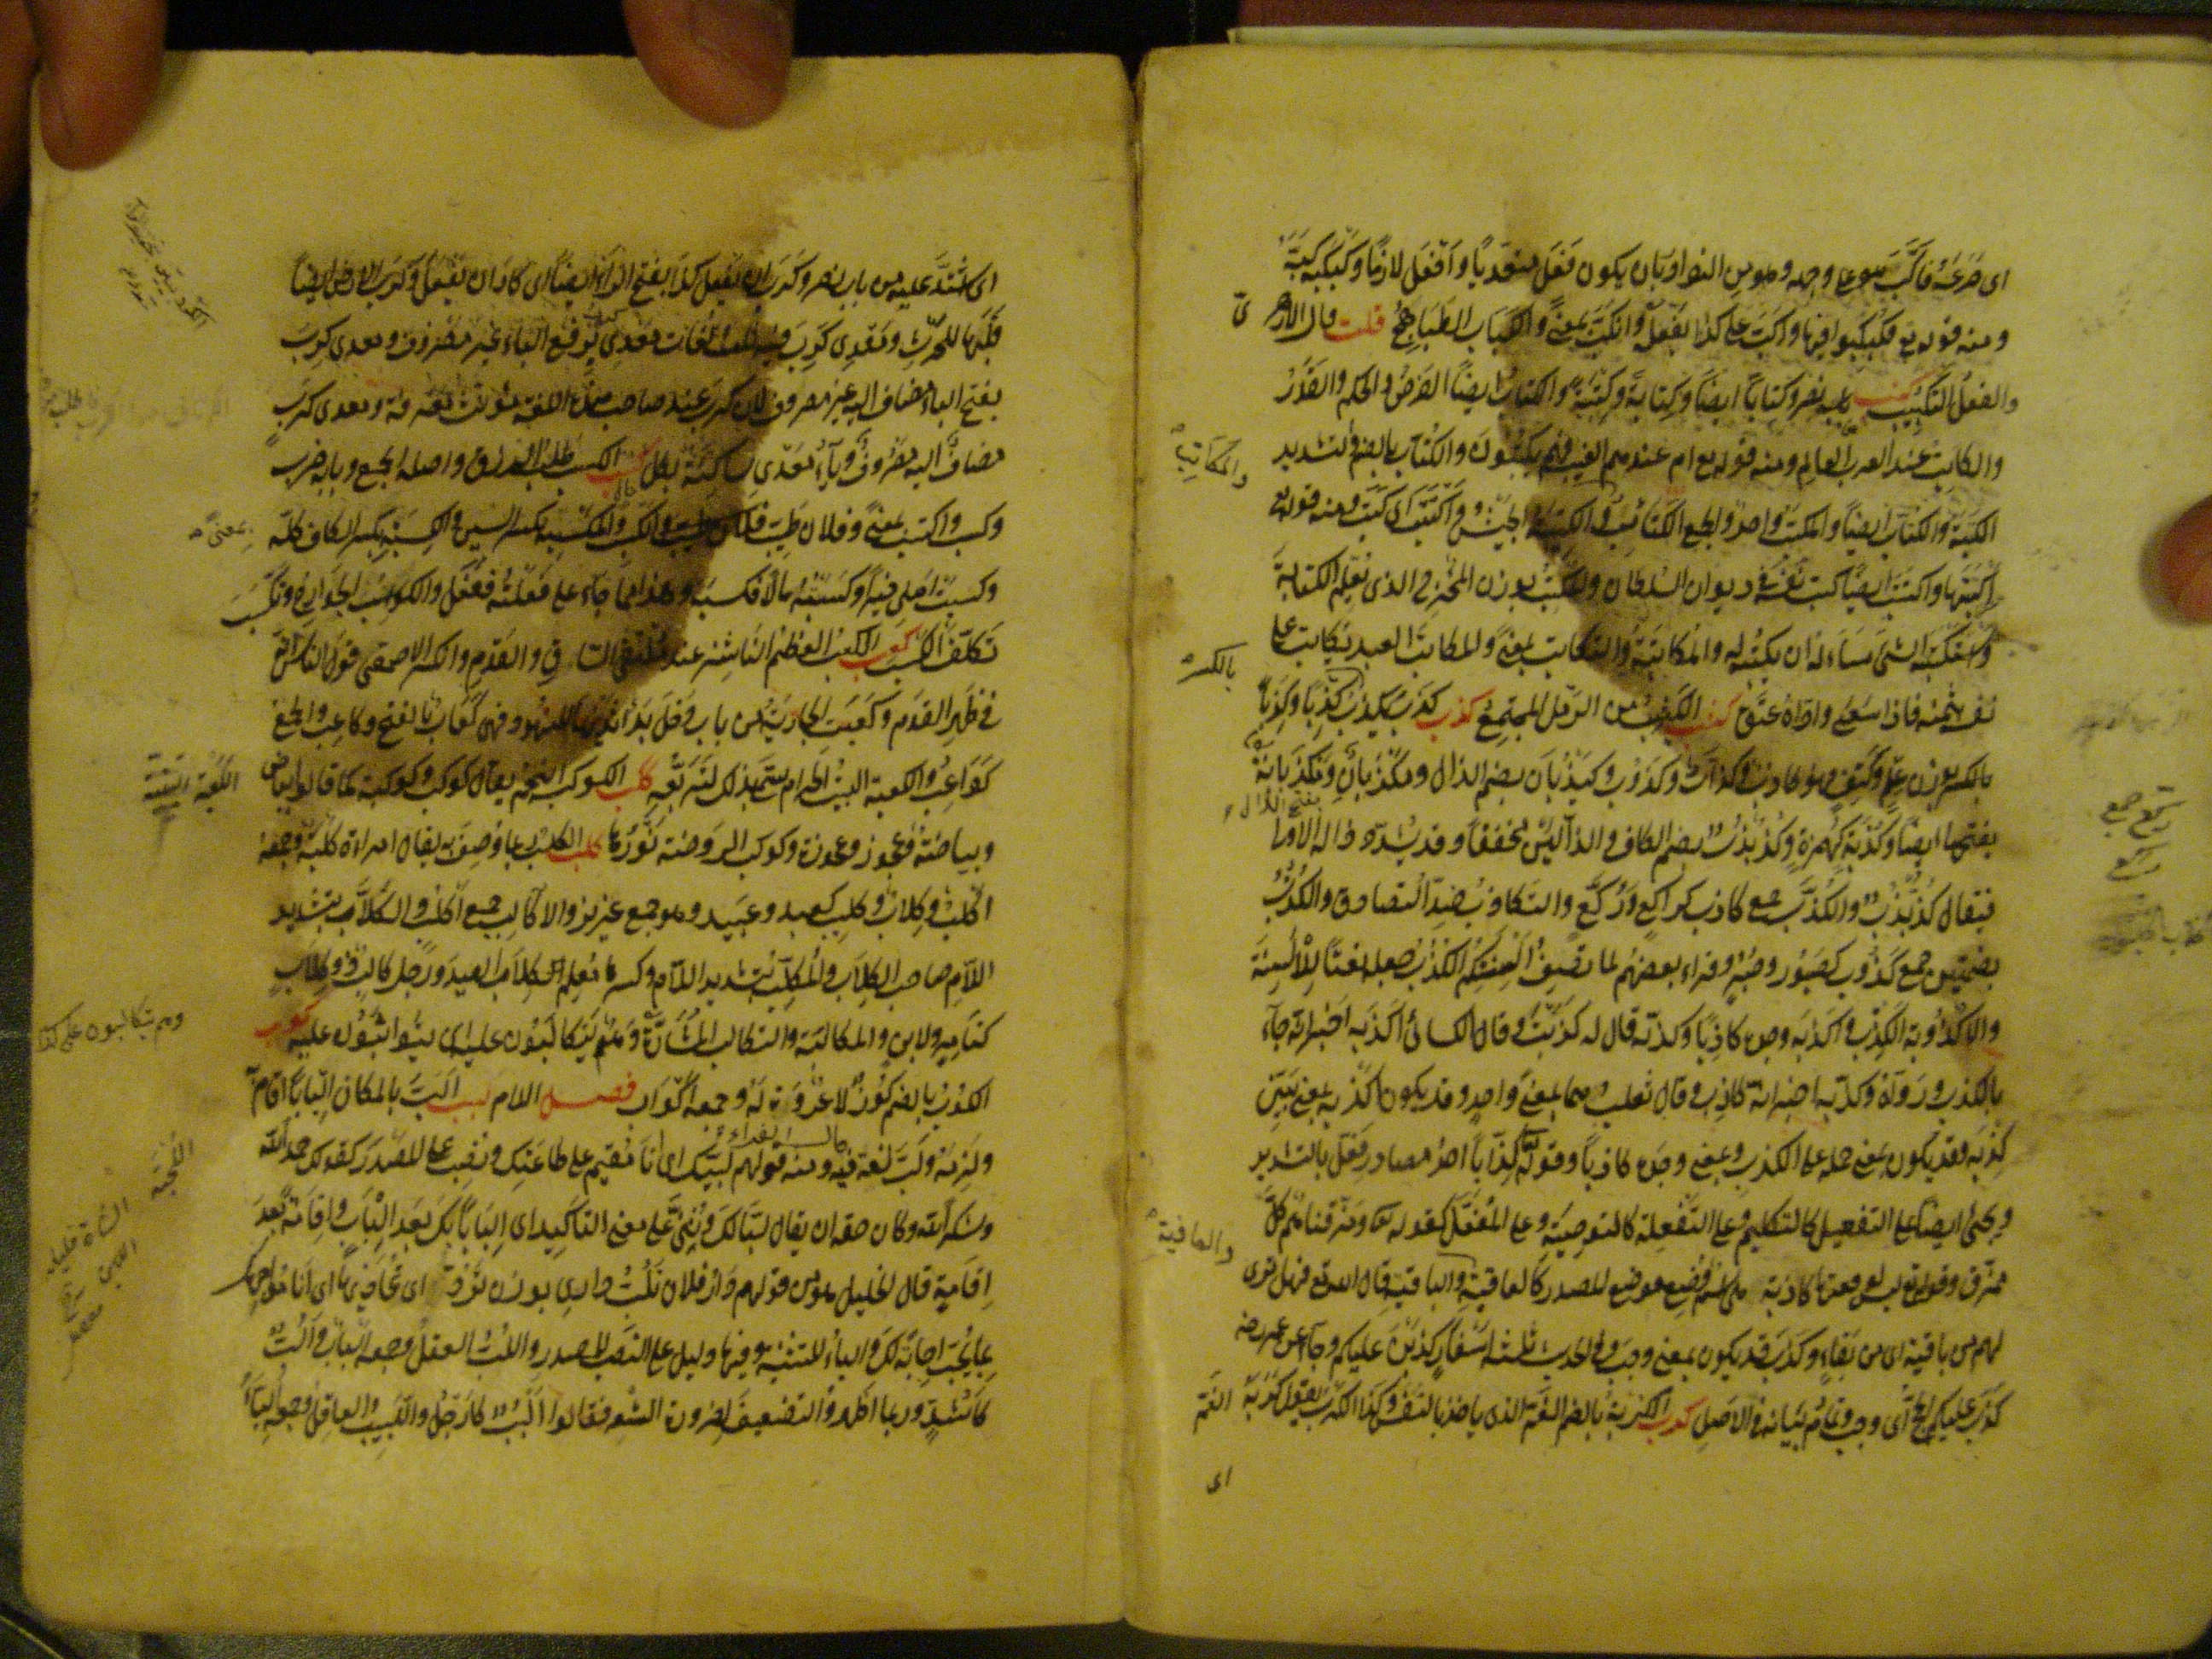 اى صَرَعَهُ فاكَبَّ هو على وجهه وهو من النوادر بان يكون فَعَلَ متعَدّيًا وأفْعَلَ لازمًا وكَبْكَبَه كَبَّهُ
ومنه قوله تع فكُبْكِبُوا فيها واكَبَّ على كذا يَفْعَلُه وانْكَبَّ بمعنىً والكَبَاب الطَّبَاهِجُ قلت قال الازهرىّ
والفعلُ التكْبِيبُ كتب بابه نصر وكتابًا ايضًا وكِتابةً وكِتْبَةً والكتابُ ايضًا الفَرضُ والحكم والقَدَرُ
والكاتِبُ عند العرب العالِم ومنه قوله تع ام عندهم الغيب فهم يكتبُونَ والكُتّاب بالضم والتشديد
الكَتَبَة والكتّاب ايضًا والمكتبُ واحد والجمع الكتاتيبُ والكتيبَة الجيشُ واكْتَتَبَ اى كَتَبَ ومنه قوله تع
اكْتَتَبَها واكتتب ايضًا كتب نَفْسَه فى ديوان السُلطان والمُكْتِبُ بوزن المُخْرِج الذى يُعَلِم الكتابة
واستكتبَه الشىَ سَأَله ان يكتُبه له والمُكاتَبَةُ والتكاتب بمعنىً والمكاتب العبد يكاتب على
نفسه بثمنه فاذا سَعى وادّاه عتَقَ كثب الكَثِيبُ من الرَمْل المجتمِعُ كذب كذَبَ يكذِبُ كِذْبًا وكَذِبًا
بالكسر بوزن عِلْمٍ وكَتِفٍ فهو كاذب وكذّاب وكَذُوب وكَيْذُبَان بضم الذال ومكْذَبان ومَكْذَبانة
بفتحها ايضًا وكُذَبَة كهُمَزةٍ وكُذُبْذُبٌ بضم الكاف والذالَيْن مخففًا وقد يُشدّد ذاله الاولى
فيقال كُذُّبْذُبٌ والكُذَّب جمع كاذب كراكِعٍ ورُكَّعٍ والتكاذب ضِدّ التصادق والكُذُبُ
بضمتين جمع كَذُوب كصَبُور وصُبُر وقراء بعضهُم لما تصفُ السِنتكُم الكُذُبُ جعله نعتًا للألْسِنَة
والاُكْذُوبة الكَذِبُ واكذبَه وجده كاذِبًا وكذبه قال له كذَبْتَ وقال الكسائى اكذبَه اخبرانه جآءَ
بالكذب ورَوَاهُ وكذّبه اخبرانه كاذِب وقال ثعلب هما بمعنىً واحدٍ وقد يكون اكذَبه بمعنى بَيَّن
كِذبَه وقد يكون بمعنى حمله على الكذب وبمعنى وجدَه كاذبًا وقوله تع كِذّابًا احدُ مصادر فَعَّلَ بالتشديد
ويجئ ايضًا على التفعيل كالتكليم وعلى التَفْعِلة كالتوصيَة وعلى المُفَعَّل كقوله تعا ومزقناهُم كلَّ
ممزّق وقوله تع ليس لوقعتها كاذبة هى اسمٌ وُضِعَ موضع المصدر كالعاقِبةِ والباقية قال الله تع فهل ترى
لهم من باقية اى من بَقاءٍ وكَذَبَ قد يكون بمعنى وجب وفى الحديث ثلثة اسْفارٍ كَذَبْنَ عليكم وجآءَ عن عمر رضه
كذَبَ عليكم الحجُّ اى وجبَ وتمامُ بَيَانه فى الاصل كرب الكُرْبَة بالضم الغَمّ الذى ياخذ بالنَفَسِ وكذا الكَرْب يقول كَرَبَهُ الغَمّ
اى
والمكاتيب
بالكسر
بفتح الذال
والعافية
اى اشتدّ عليه من باب نصر وكَرَبَ ان يَفْعَلَ كذا بفتح الرّاء ايضًا اى كادَ ان يَفْعَلَ وكَرَب الارضَ ايضًا
قَلَبَها للحَرْثِ ومَعْدِى كَرِبَ فيه ثلث لُغات مَعْدِى كَرِبُ برفع الباءَ غيرَ مصْروف ومعدى كرِبَ
بفتح الباء مضاف اليه غير مصروف لان كرب عند صاحب هذه اللغة مُؤنث مَعْرفة ومعدى كرِبٍ
مضافٌ اليه مَصْروف ويآءُ معدى ساكنَة بكل حال كسب الكسب طلبُ الرزق واصله الجمع وبابه ضرب
وكسب واكتسب بمعنىً وفلان طَيِّبُ الكسب والمكسِب والمَكْسِبة بكسر السين والكِسبَة بكسر الكاف كله
وكسبتُ اهلى خيرًا وكسَبْتُهُ مالًا فكسَبَه وهذا مما جآءَ على فَعَلْتُه ففعَلَ والكواسِب الجَوَارِح وتكَسَّبَ
تَكلّفَ الكسبَ كعب الكعبُ العظْم النّاشِز عند مُلتقى السّاقِ والقَدَمِ وانكر الاصمعى قول الناس انه
فى ظَهر القَدَم وكعَبَت الجارِيةُ من باب دخل بَدا ثَدْيُها للنهُود فهى كَعَاب بالفتح وكاعِب والجمع
كواعِبُ والكعبة البيتُ الحرام سمّى بذلك لتَربّعه ككب الكَوكب النجم يقال كوكب وكوكبة كما قالوا بياض
وبياضَة وعجوز وعجوزة وكوكب الروضة نَوْرُها كلب الكلب ربما وُصِفَ به يقال امرأة كلبَة وجمعه
اكْلُبٌ وكِلابٌ وكَلِيب كعبد وعَبيد وهو جمع عزيز والاكالِب جمع اكلُب والكلاَّب بتشديد
اللّام صاحب الكِلاَب والمُكَلِّب بتشديد اللّام وكسرها مُعلِم الكِلاب الصيد ورَجُل كالِبٌ وكلّابٌ
كتامِرٍ ولابن والمكالبَة والتكالب المُشارّة وهُم يَتكالَبُون عليه اى يتواثبُون عليه كوب
الكُوب بالضم كُوز لا عُرْوَة له وجمعه اكْوَاب فصل اللام لبب اَلَبَّ بالمكان اِلْبابًا اَقامَ
ولزِمَهُ ولَبَّ لغة فيه قال الفراء ومنه قولهم لَبَّيْكَ اى اَنا مُقيم على طاعتِك ونُصِبَ على المَصْدر كقولك حمدًا لله
وشكرًا لله وكان حقه ان يقال لبًّا لَكَ وثُنِّىَ على معنى التاكِيد اى اِلْبَابًا بِكَ بَعدَ اِلْبَابٍ واِقامَةً بَعدَ
اِقامةٍ قال الخليل هو من قولهم دَار فلان تَلُبُّ دارى بوزن تَرُدّ اى تُحَاذِيها اى اَنا مُوَاجِهُك
بما تُحبّ اِجابَةً لكَ والياءُ للتثنيَة وفيها دليل على النَصْب للمصدر واللُبّ العقلُ وجمعه الْبَاب واَلُبٌّ
كاشُدّ وربما اظهَروا التضعيفَ لضرورة الشعر فقالوا اَلْبُبٌ كارْجُلٍ واللّبيبُ العاقِل وجمعه اَلِبَّاءُ
بمعنىً
وهم يتكالبون على كذا